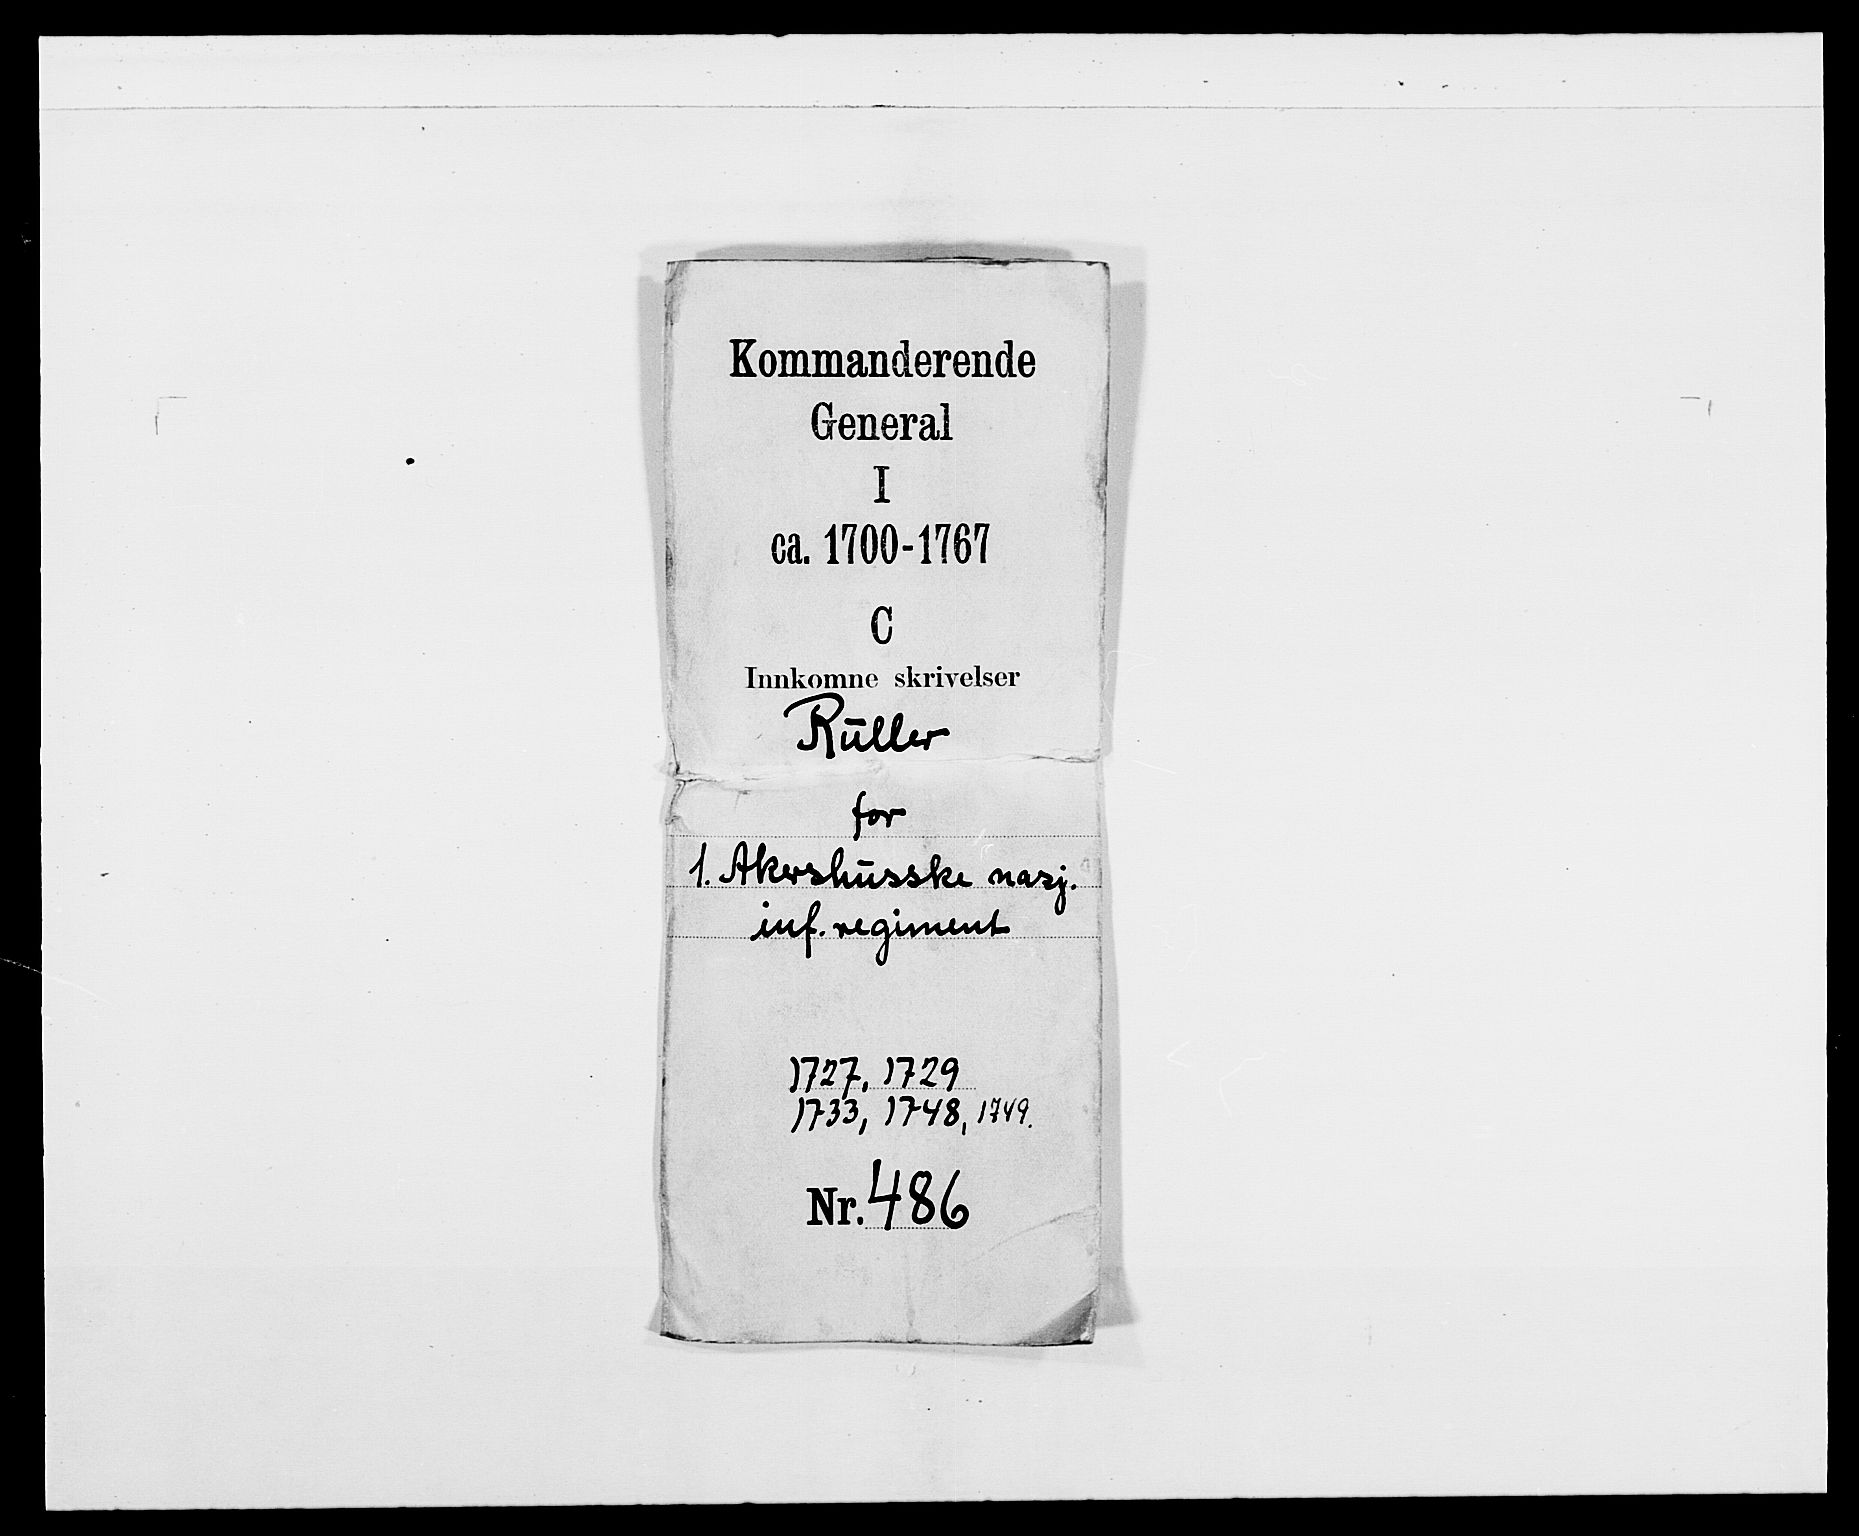 Kommanderende
General
I
ca. 1700-1767
C
Innkomne skrivelser
Ruller
for
1. Akershusske nasj.
inf. regiment
1727, 1729
1733, 1748, 1749.
Nr. 486